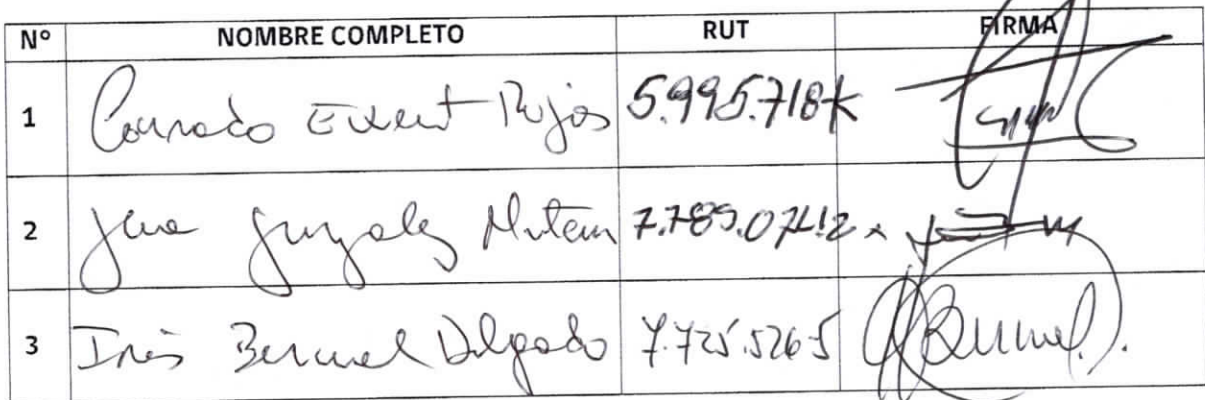 N° NOMBRE COMPLETO RUT FIRMA
1 Conrado Rojas 5.995.718-K
2 Gonzalez 7.789.074-2
3 Inés Bernal Delgado 7.725.526-5